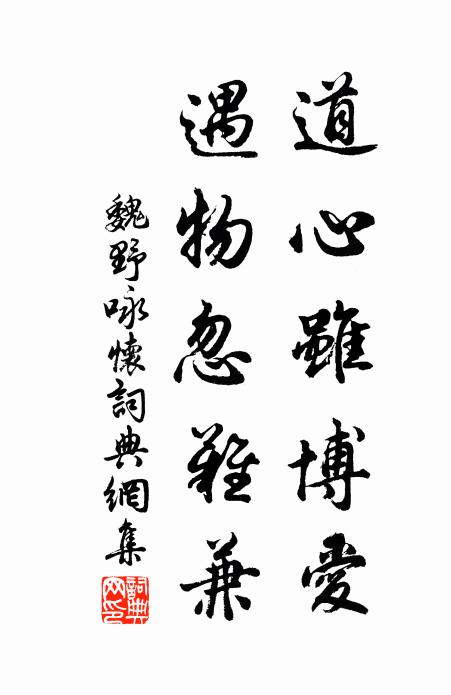 道心雖博愛
遇物忽難兼
魏野咏懷詞典網集
詞典网印